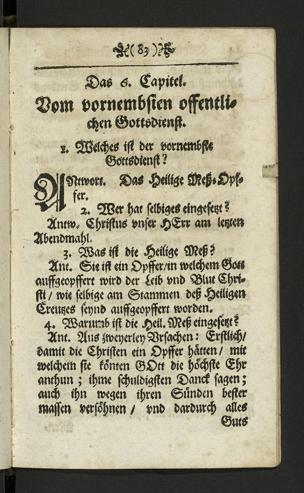 ( 83 )
Das 6. Capitel.
Vom vornembsten offentli-
chen Gottsdienst.
1. Welches ist der vornembste
Gottsdienst?
ANtwort. Das Heilige Meß-Opf-
fer.
2. Wer hat selbiges eingesetzt?
Antw. Christus vnser HErr am letzten
Abendmahl.
3. Was ist die Heilige Meß?
Ant. Sie ist ein Opffer/in welchem Gott
auffgeopffert wird der Leib vnd Blut Chri-
sti/ wie selbige am Stammen deß Heiligen
Creutzes seynd auffgeopffert worden.
4. Warumb ist die Heil. Meß eingesetzt?
Ant. Aus zweyerley Vrsachen: Erstlich/
damit die Christen ein Opffer hätten/ mit
welchem sie könten GOtt die höchste Ehr
anthun; ihme schuldigsten Danck sagen;
auch ihn wegen ihren Sünden bester
massen versöhnen/ vnd dardurch alles
Guts